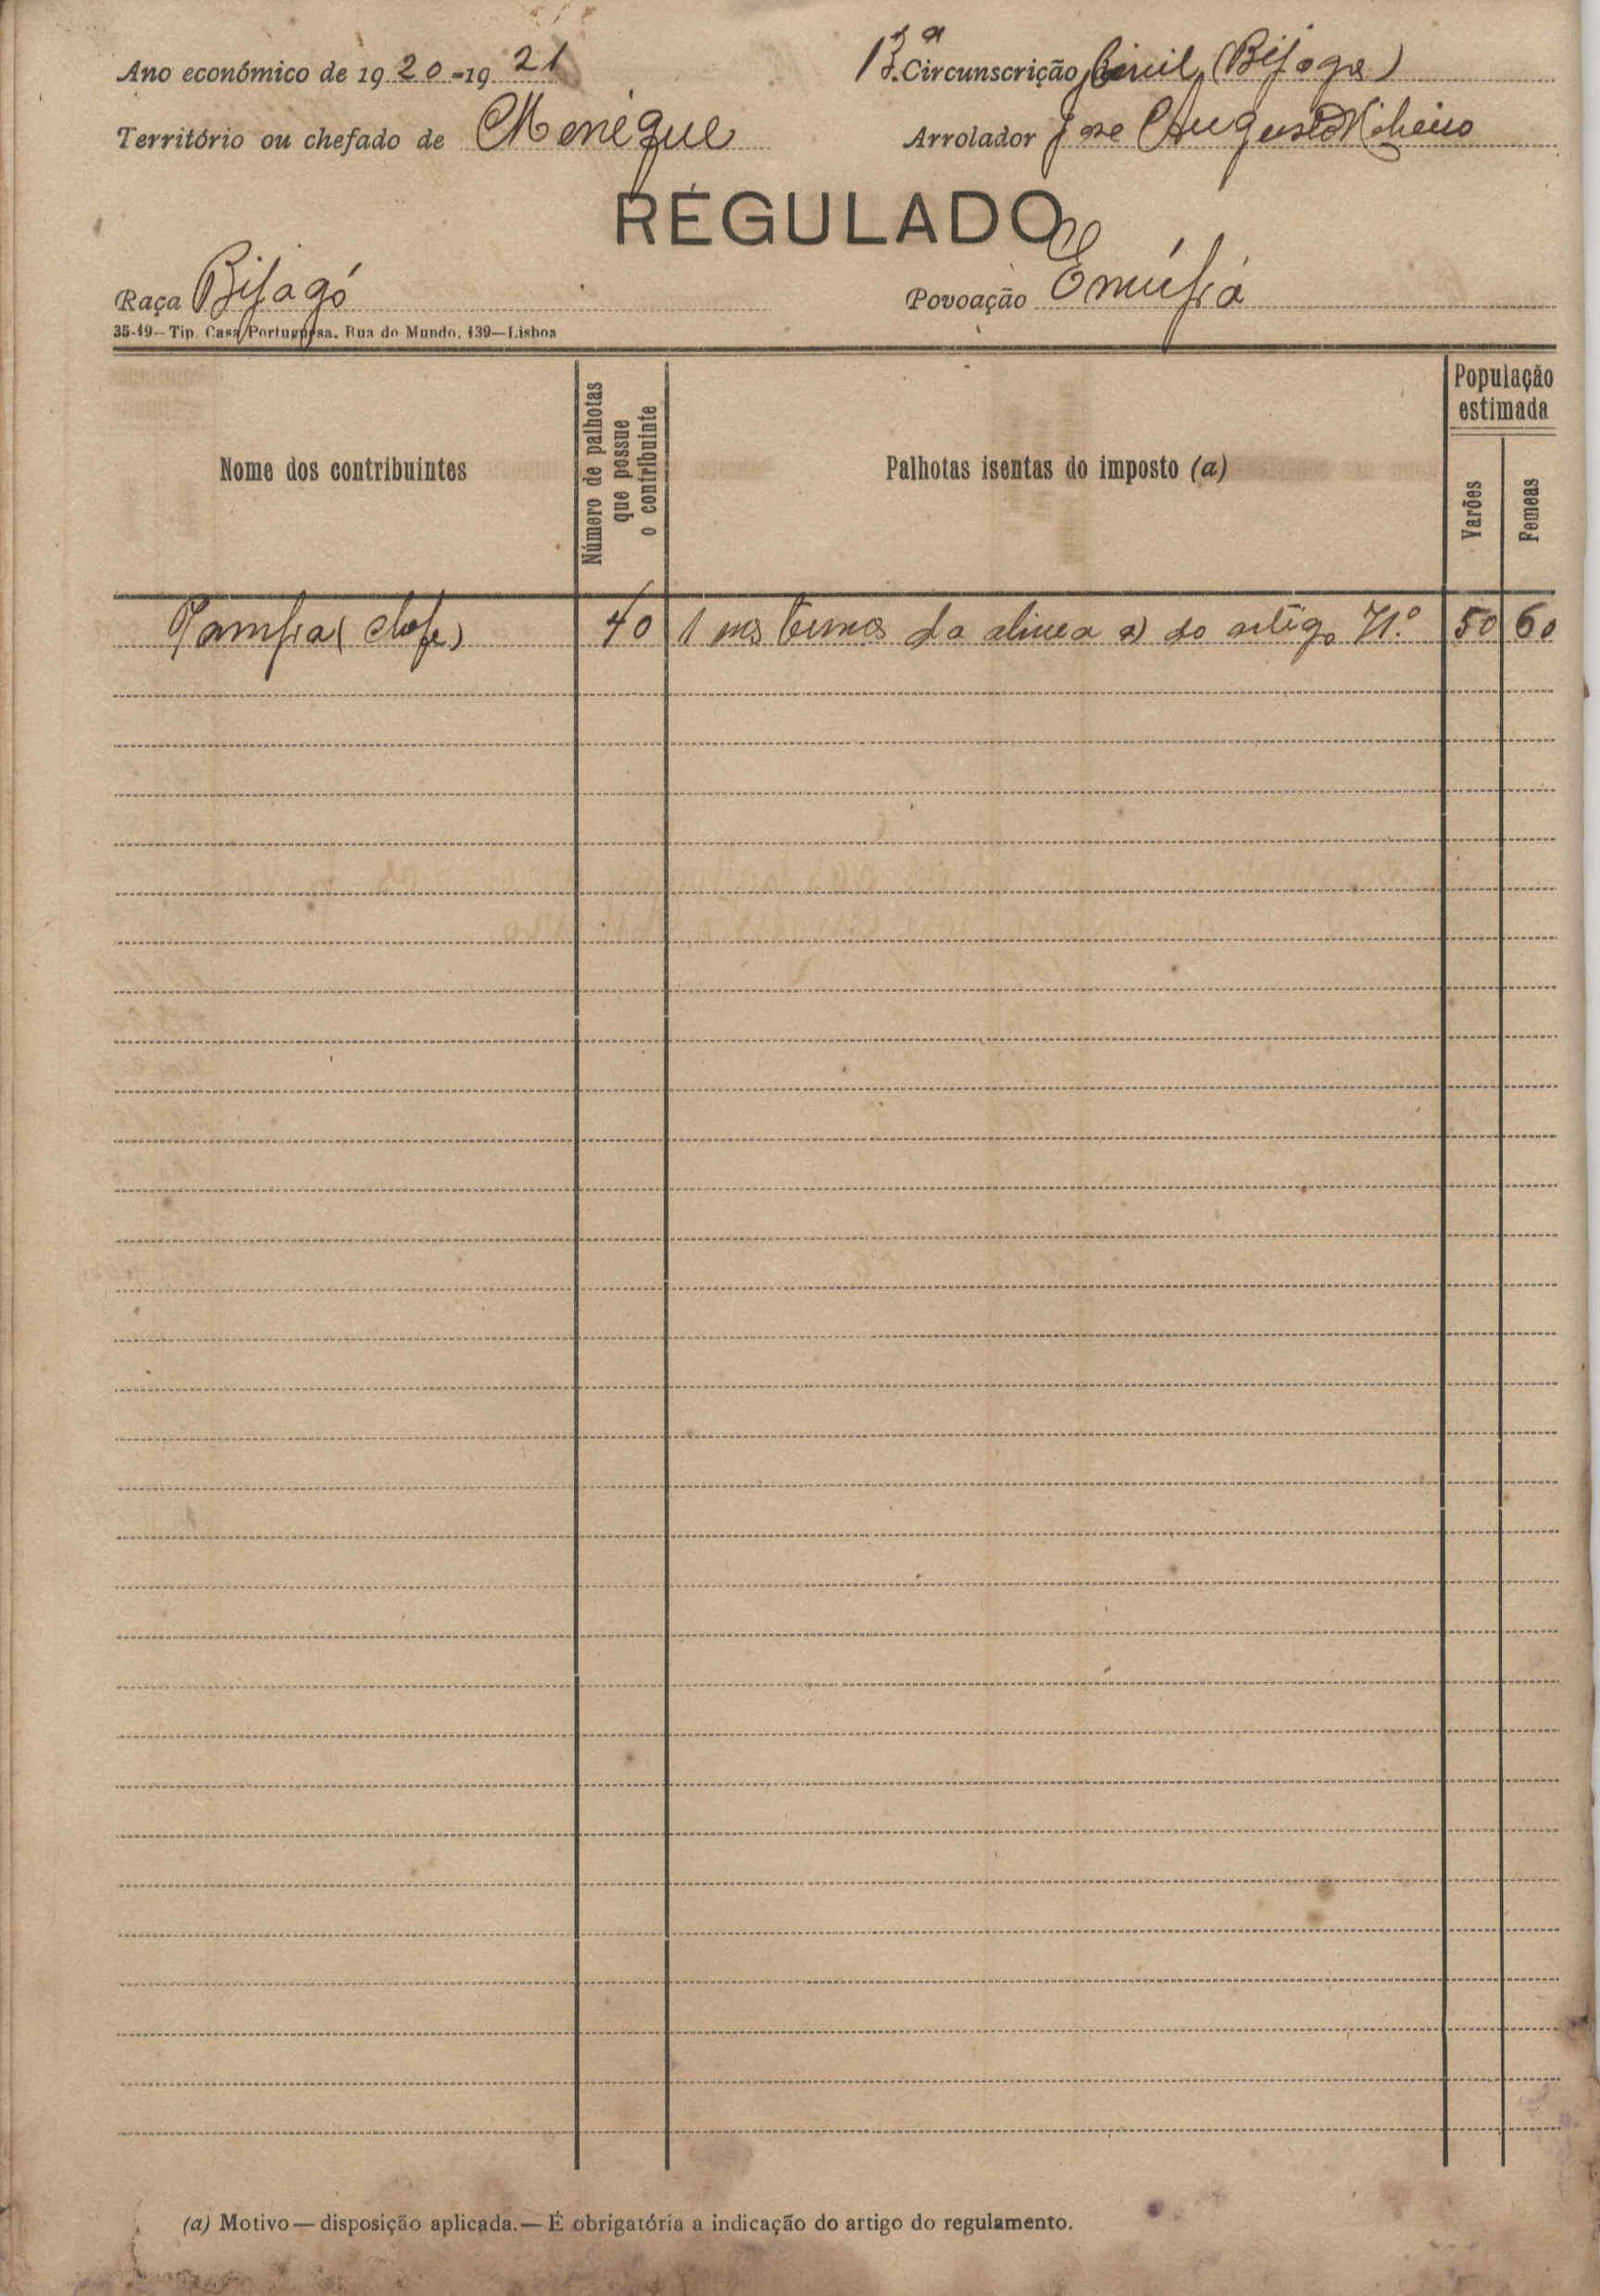 Ano económico de 1920-1921
13.ª Circunscrição Civil (Bijagos)
Território ou chefado de Menéque
Arrolador José Augusto Ribeiro
RÉGULADO
Raça Bijagó
Povoação
35-19—Tip. Casa Portuguesa. Rua do Mundo, 139—Lisboa
Nome dos contribuintes
Número de palhotas que possue o contribuinte
Palhotas isentas do imposto (a)
População estimada
Varões
Femeas
(chefe) 40 1 nos termos da alinea a) do artigo 71.º 50 60
(a) Motivo—disposição aplicada.—É obrigatória a indicação do artigo do regulamento.